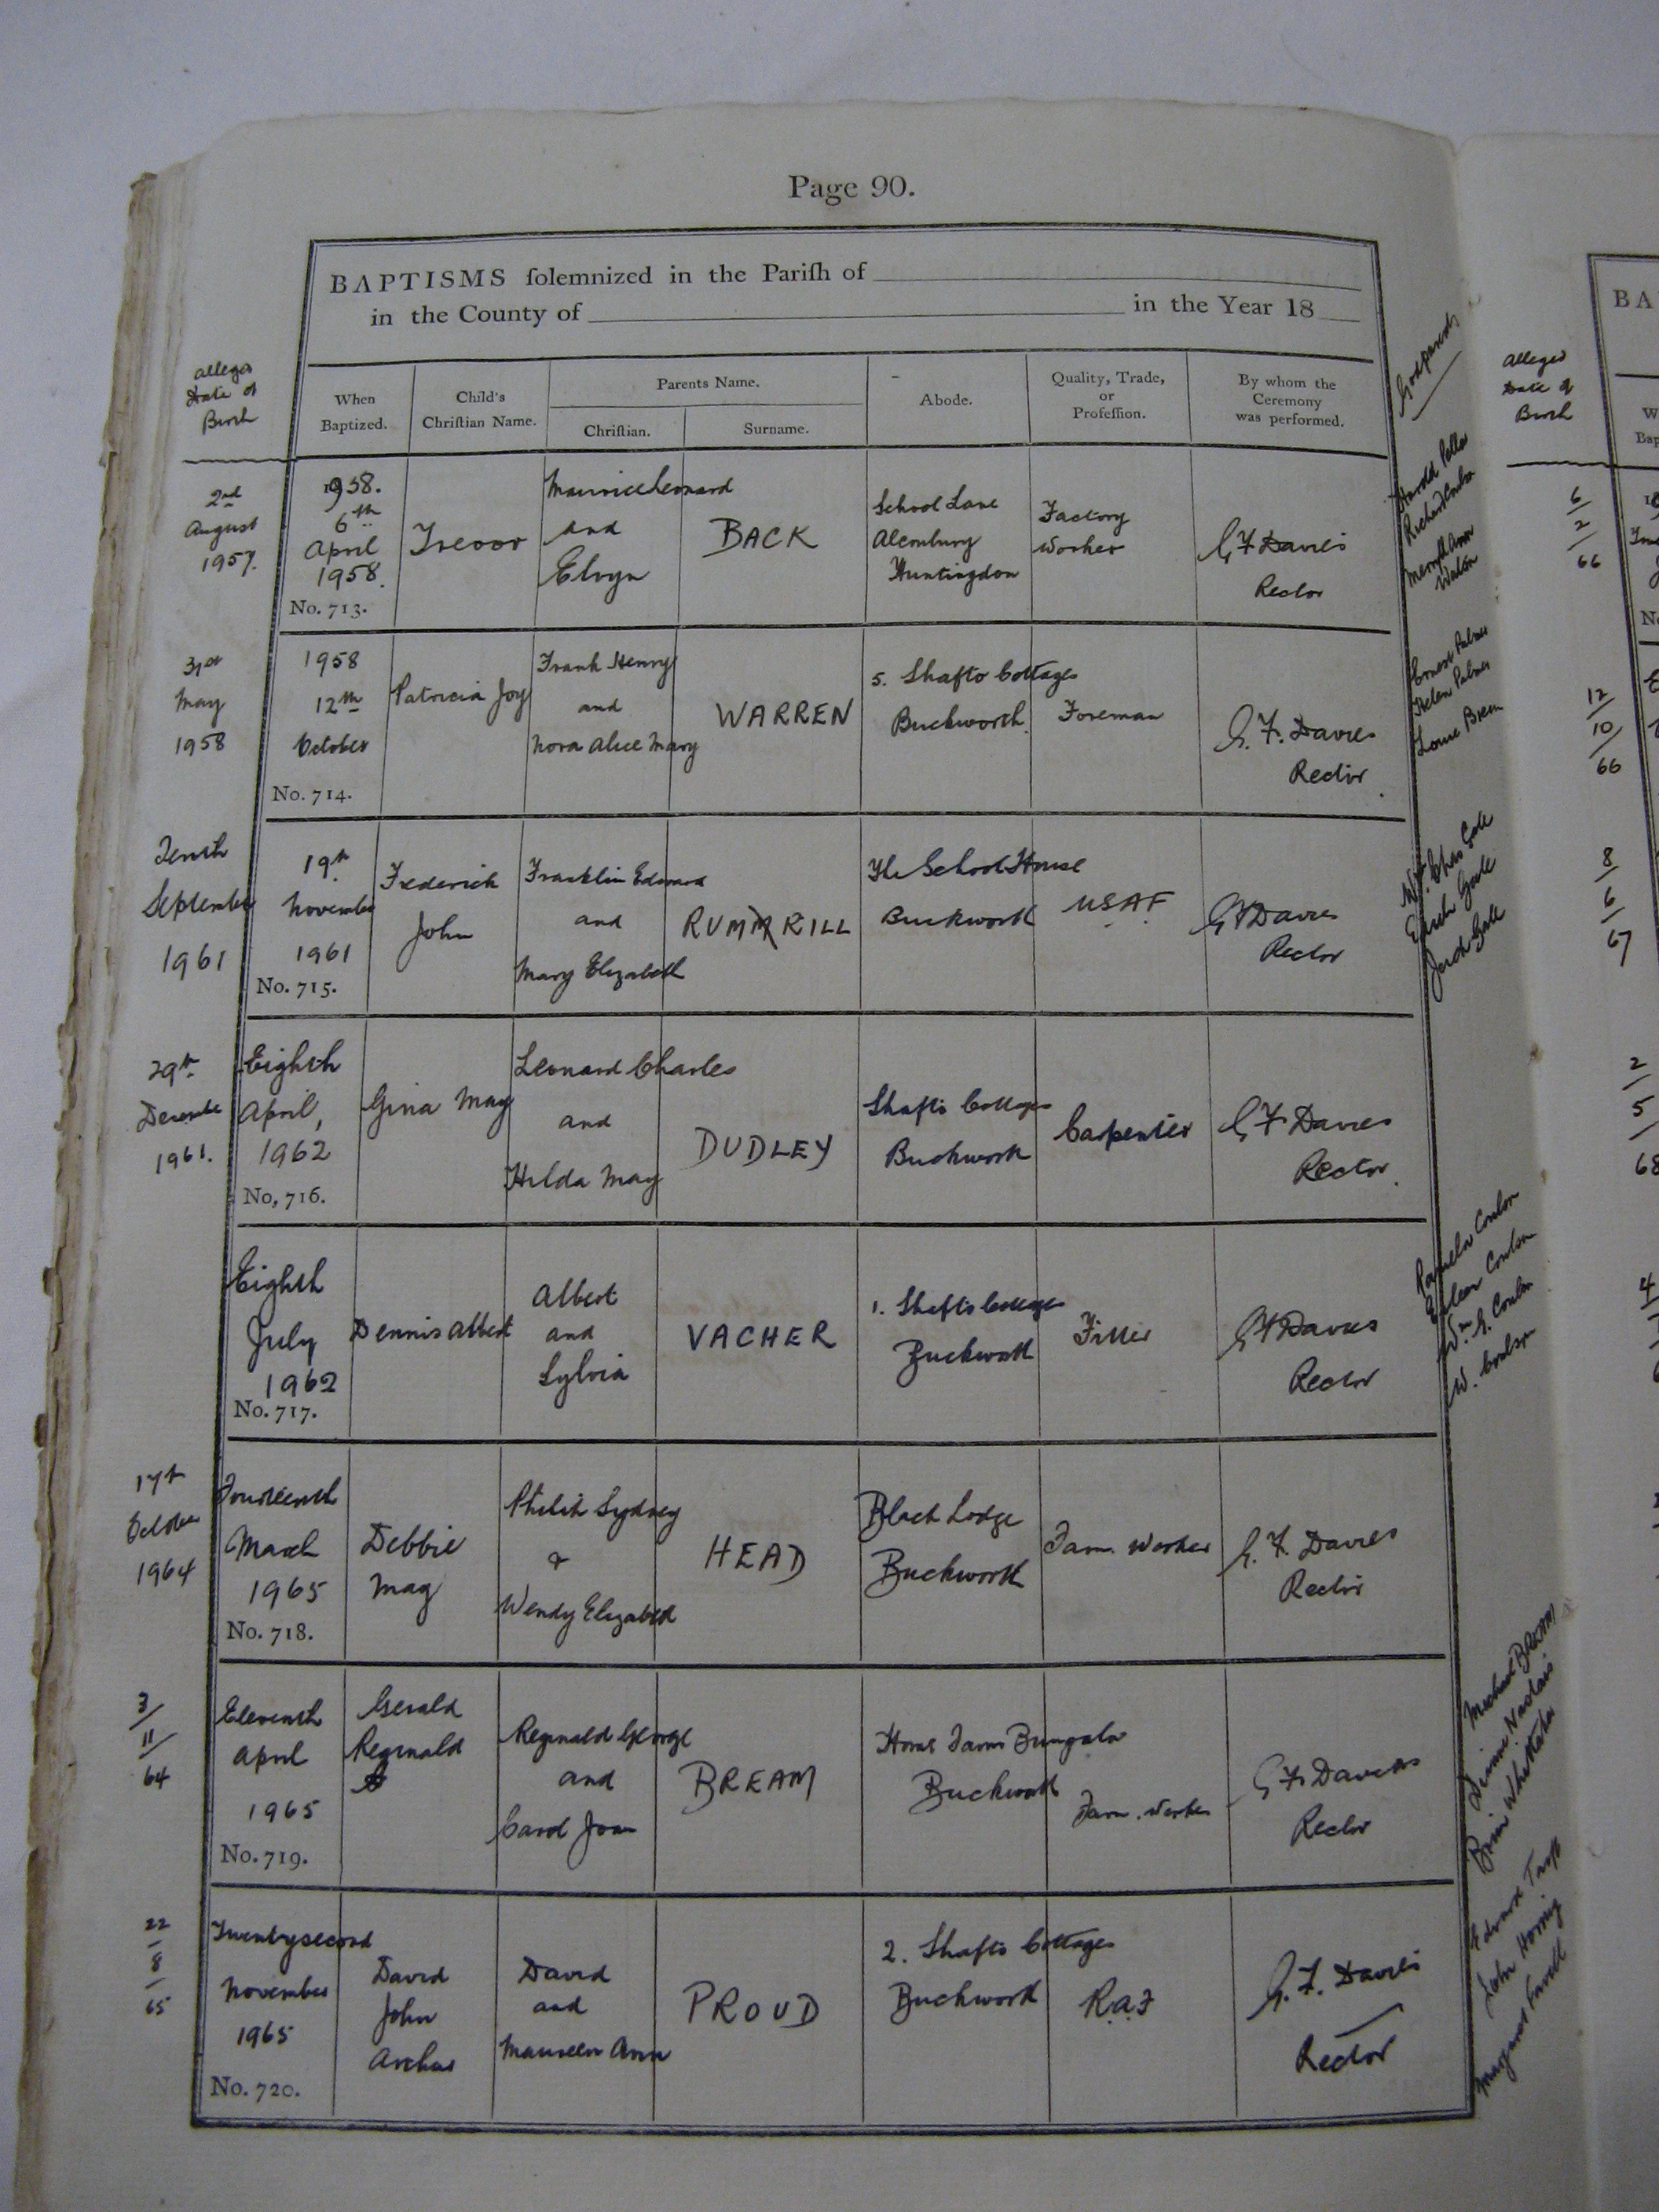 Page 90.
BAPTISMS ſolemnized in the Pariſh of
in the County of in the Year 18
Alleged
Date of
Birth
When
Baptized.
Child's
Chriſtian Name.
Parents Name.
Chriſtian.
Surname.
Abode.
Quality, Trade,
or
Profeſſion.
By whom the
Ceremony
was performed.
Godparents
2nd
August
1957.
1958.
6th
April
1958.
No. 713.
Trevor
Maurice Leonard
and
Elvyn
BACK
School Lane
Alconbury
Huntingdon
Factory
Worker
G F Davies
Rector
Harold
Richard
Ann
31st
May
1958
1958
12th
October
No. 714.
Patricia Joy
Frank Henry
and
Nora Alice Mary
WARREN
5. Shafto Cottages
Buckworth.
Foreman
G. F. Davies
Rector.
Ernest Palmer
Helen Palmer
Tenth
September
1961
19th
November
1961
No. 715.
Frederick
John
Franklin Edward
and
Mary Elizabeth
RUMRILL
The School House
Buckworth
U.S.A.F
G F Davies
Rector
Wm. Chas Gale
Edith Gale
Gale
29th
December
1961.
Eighth
April,
1962
No, 716.
Gina May
Leonard Charles
and
Hilda May
DUDLEY
Shafto Cottages
Buckworth
Carpenter
G F Davies
Rector.
Eighth
July
1962
No. 717.
Dennis Albert
Albert
and
Sylvia
VACHER
1. Shafto Cottages
Buckworth
Fitter
G F Davies
Rector
Pamela Coulson
Eileen Coulson
Wm. G. Coulson
W. Coulson
17th
October
1964
Fourteenth
March
1965
No. 718.
Debbie
May
Philip Sydney
&
Wendy Elizabeth
HEAD
Black Lodge
Buckworth
Farm Worker
G. F. Davies
Rector
3/
11/
64
Eleventh
April
1965
No. 719.
Gerald
Reginald
Reginald George
and
Carol Joan
BREAM
Home Farm Bungalow
Buckworth
Farm. Worker
G F Davies
Rector
Michael Bream
Brian
22
8
65
Twentysecond
November
1965
No. 720.
David
John
Archer
David
and
Maureen Ann
PROUD
2. Shafto Cottages
Buckworth
R.A.F
G. F. Davies
Rector
Edward
John
Margaret
BA
Alleged
Date of
Birth
6/
2/
66
12/
10/
66
8/
6/
67
2/
5/
68